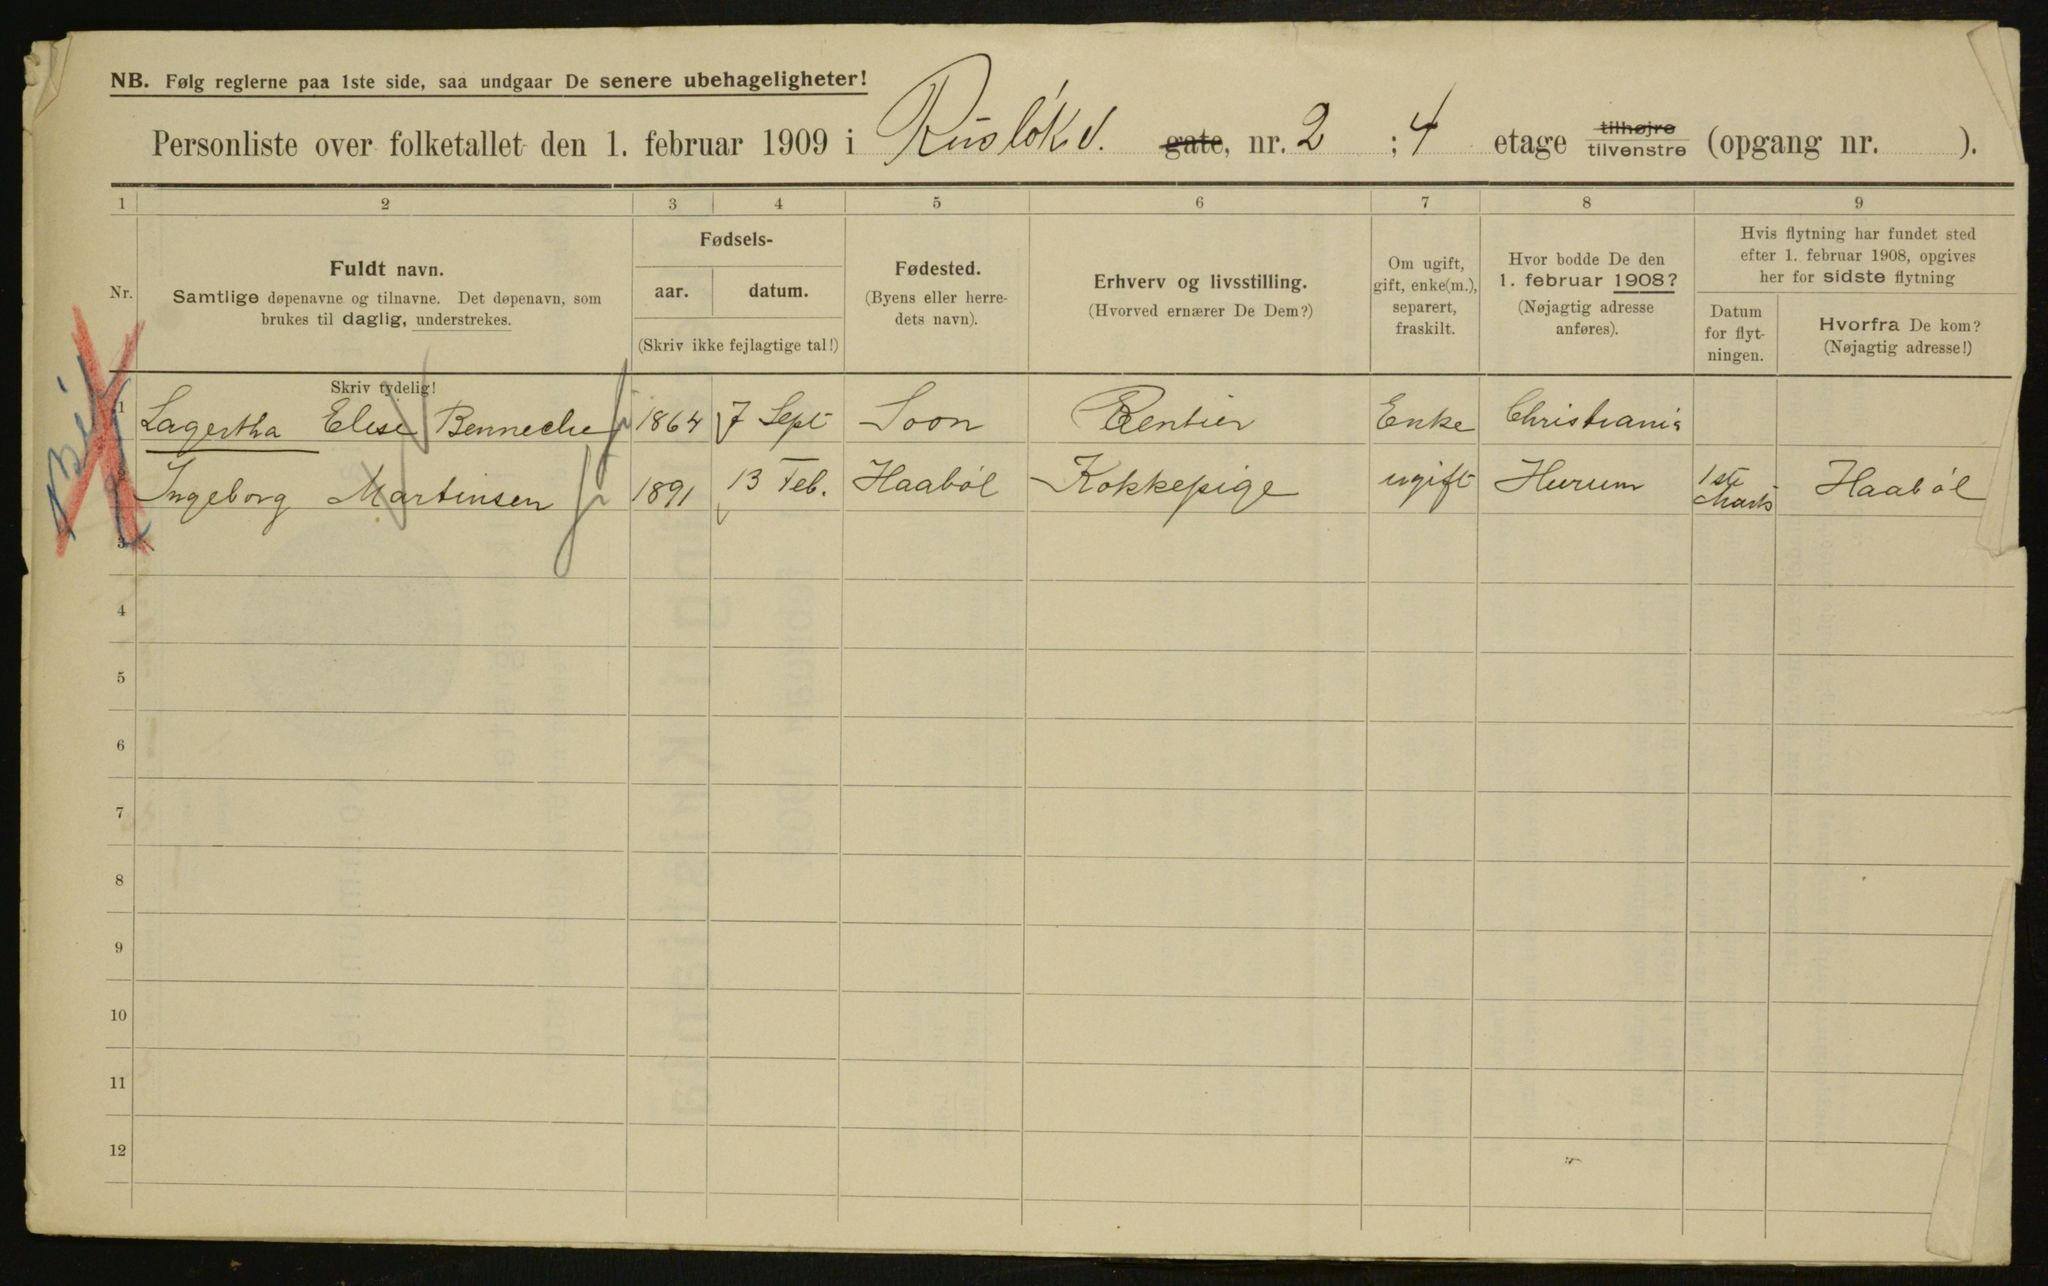 NB. Følg reglerne paa 1ste side, saa undgaar De senere ubehageligheter!
Personliste over folketallet den 1. februar 1909 i Rusløkv. gate, nr. 2 ; 4 etage tilhøjre tilvenstre (opgang nr. ).
1 2 3 4 5 6 7 8 9
Nr.
Fuldt navn.
Samtlige døpenavne og tilnavne. Det døpenavn, som
brukes til daglig, understrekes.
Skriv tydelig!
Fødsels-
aar. datum.
(Skriv ikke fejlagtige tal!)
Fødested.
(Byens eller herre-
dets navn).
Erhverv og livsstilling.
(Hvorved ernærer De Dem?)
Om ugift,
gift, enke(m.),
separert,
fraskilt.
Hvor bodde De den
1. februar 1908?
(Nøjagtig adresse
anføres).
Hvis flytning har fundet sted
efter 1. februar 1908, opgives
her for sidste flytning
Datum
for flyt-
ningen.
Hvorfra De kom?
(Nøjagtig adresse!)
1 Lagertha Elise Bennecke 1864 7 Sept Soon Rentier Enke Christiania
2 Ingeborg Martinsen 1891 13 Feb. Haabøl Kokkepige ugift Hurum 1ste Marts Haabøl
3
4
5
6
7
8
9
10
11
12